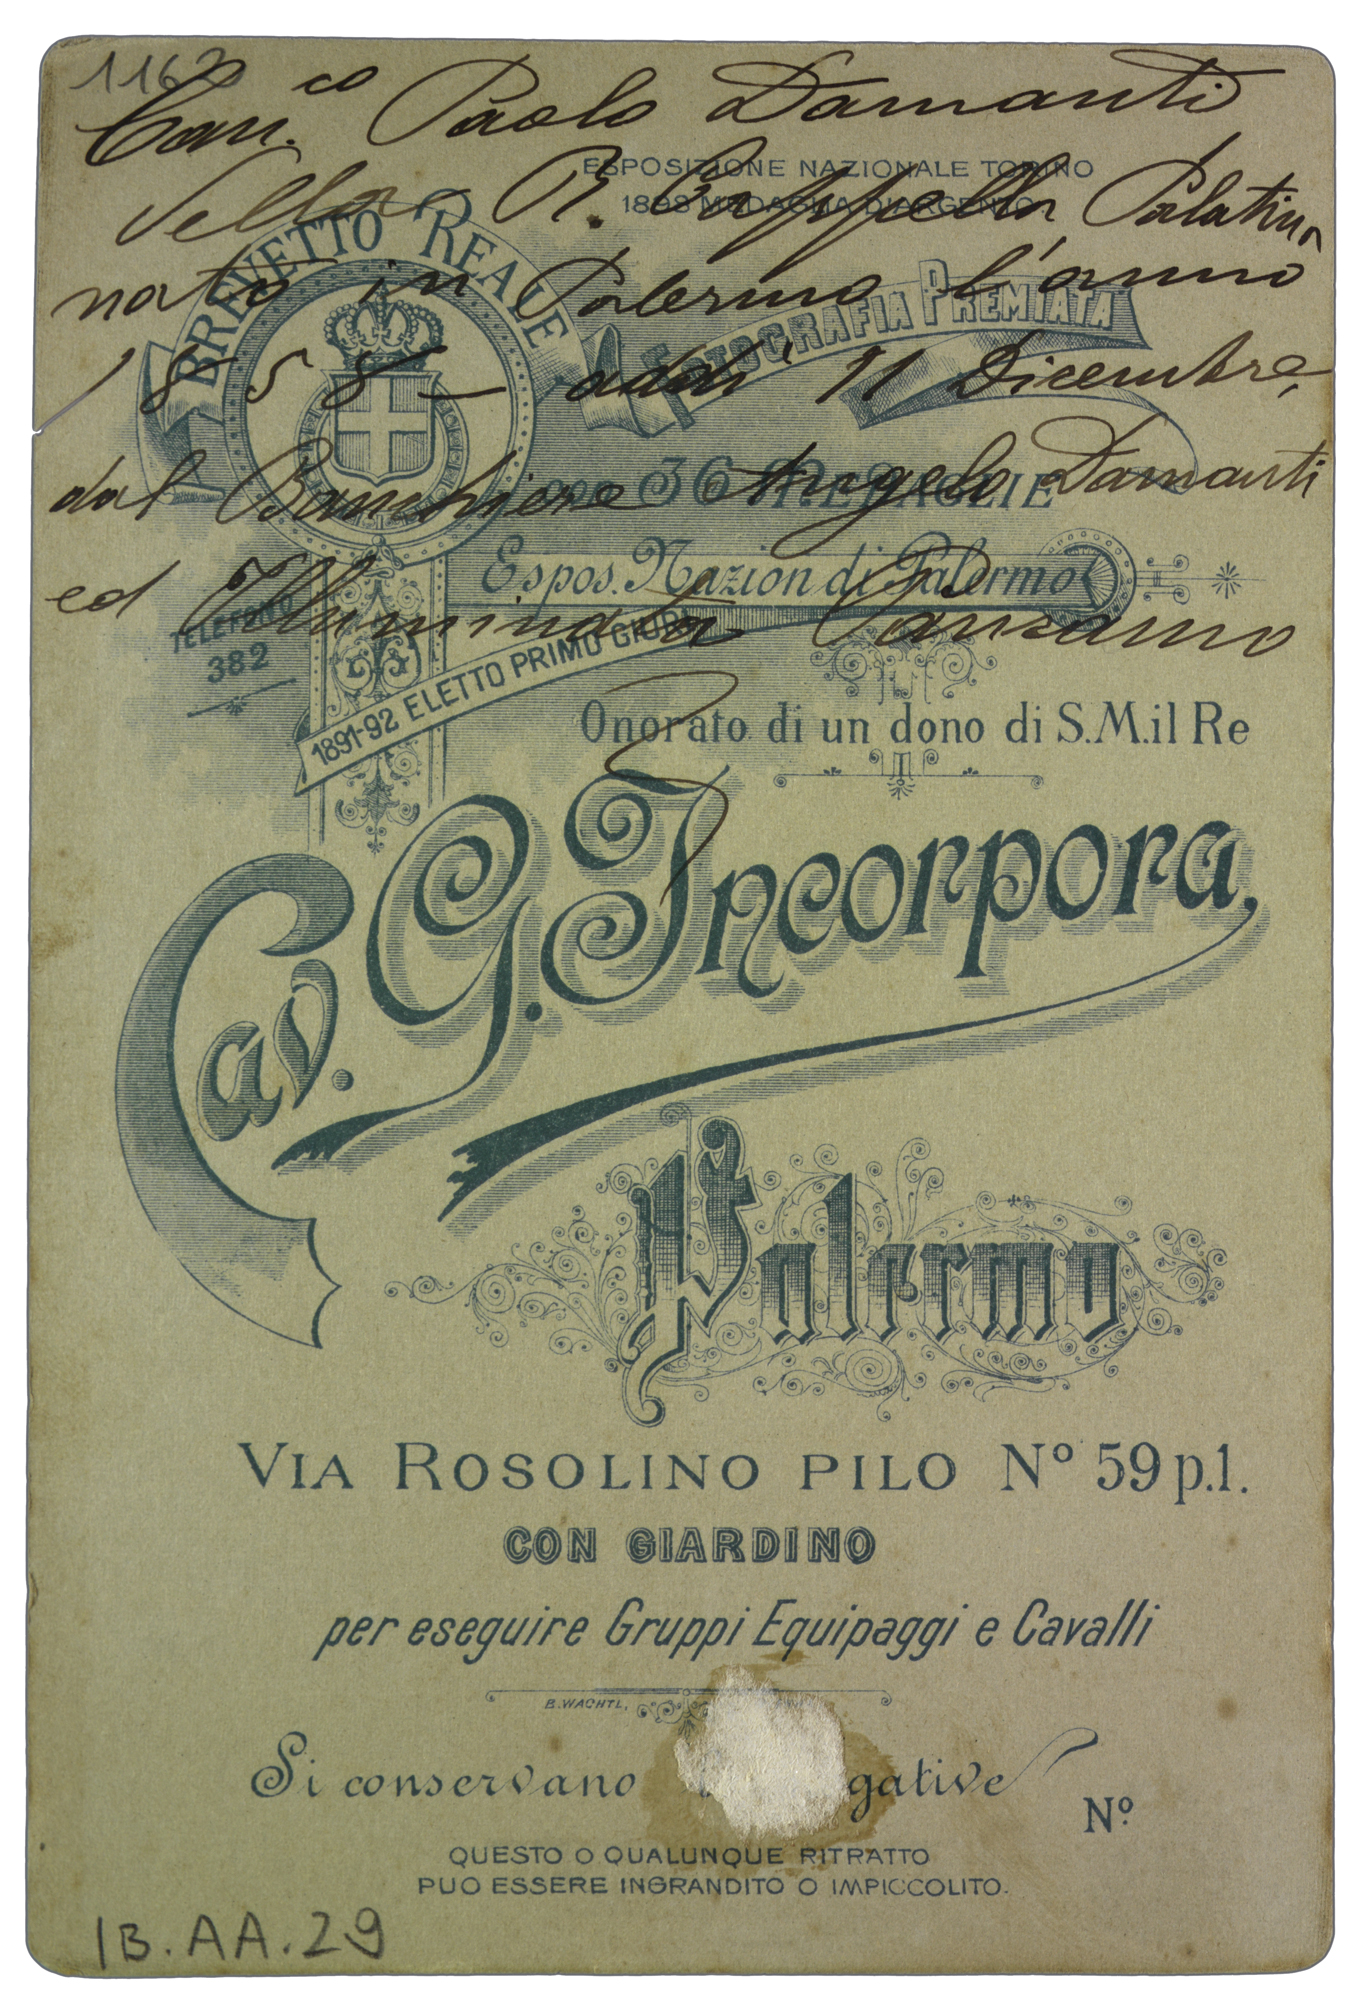 1163
Can.co Paolo Damanti
della R. Cappella Palatina
nato in Palermo l'anno
1858 - addì 11 Dicembre,
dal Banchiere Angelo Damanti
ed Illuminata Panzanno
ESPOSIZIONE NAZIONALE TORINO
1898 MEDAGLIA D'ARGENTO
BREVETTO REALE
FOTOGRAFIA PREMIATA
CON 36 MEDAGLIE
Espos. Nazion di Palermo
1891-92 ELETTO PRIMO GIURI
TELEFONO
382
Onorato di un dono di S.M.il Re
Cav. G. Incorpora,
Palermo
VIA ROSOLINO PILO No 59 p.1.
CON GIARDINO
per eseguire Gruppi Equipaggi e Cavalli
B. WACHTL,
Si conservano gative
No.
QUESTO O QUALUNQUE RITRATTO
PUO ESSERE INGRANDITO O IMPICCOLITO.
IB.AA.29